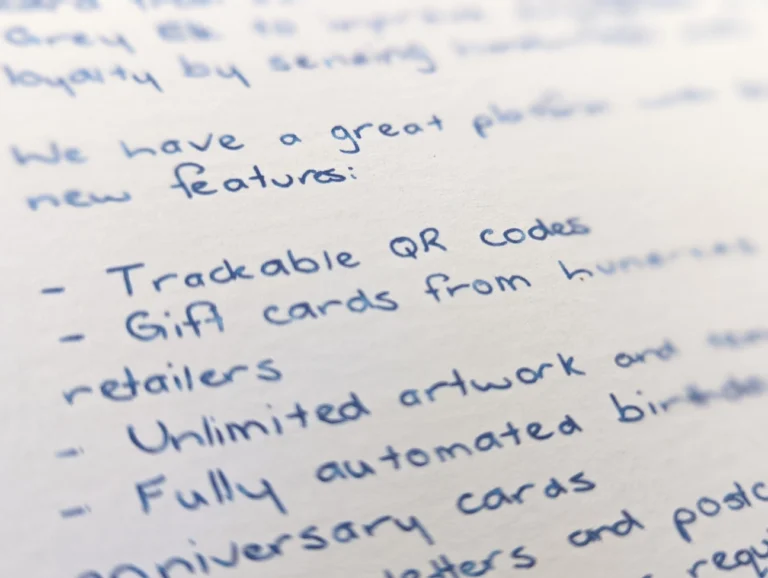 to improve
loyalty by sending
We have a great platform with
new features:
- Trackable QR codes
- Gift cards from hundreds
retailers
- Unlimited artwork and
- Fully automated
anniversary cards
letters and